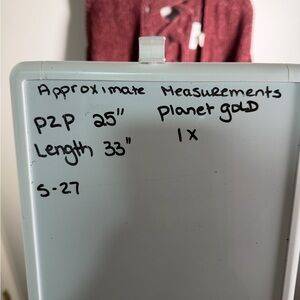 Approximate Measurements
P2P 25" planet gold
Length 33" 1x
S-27